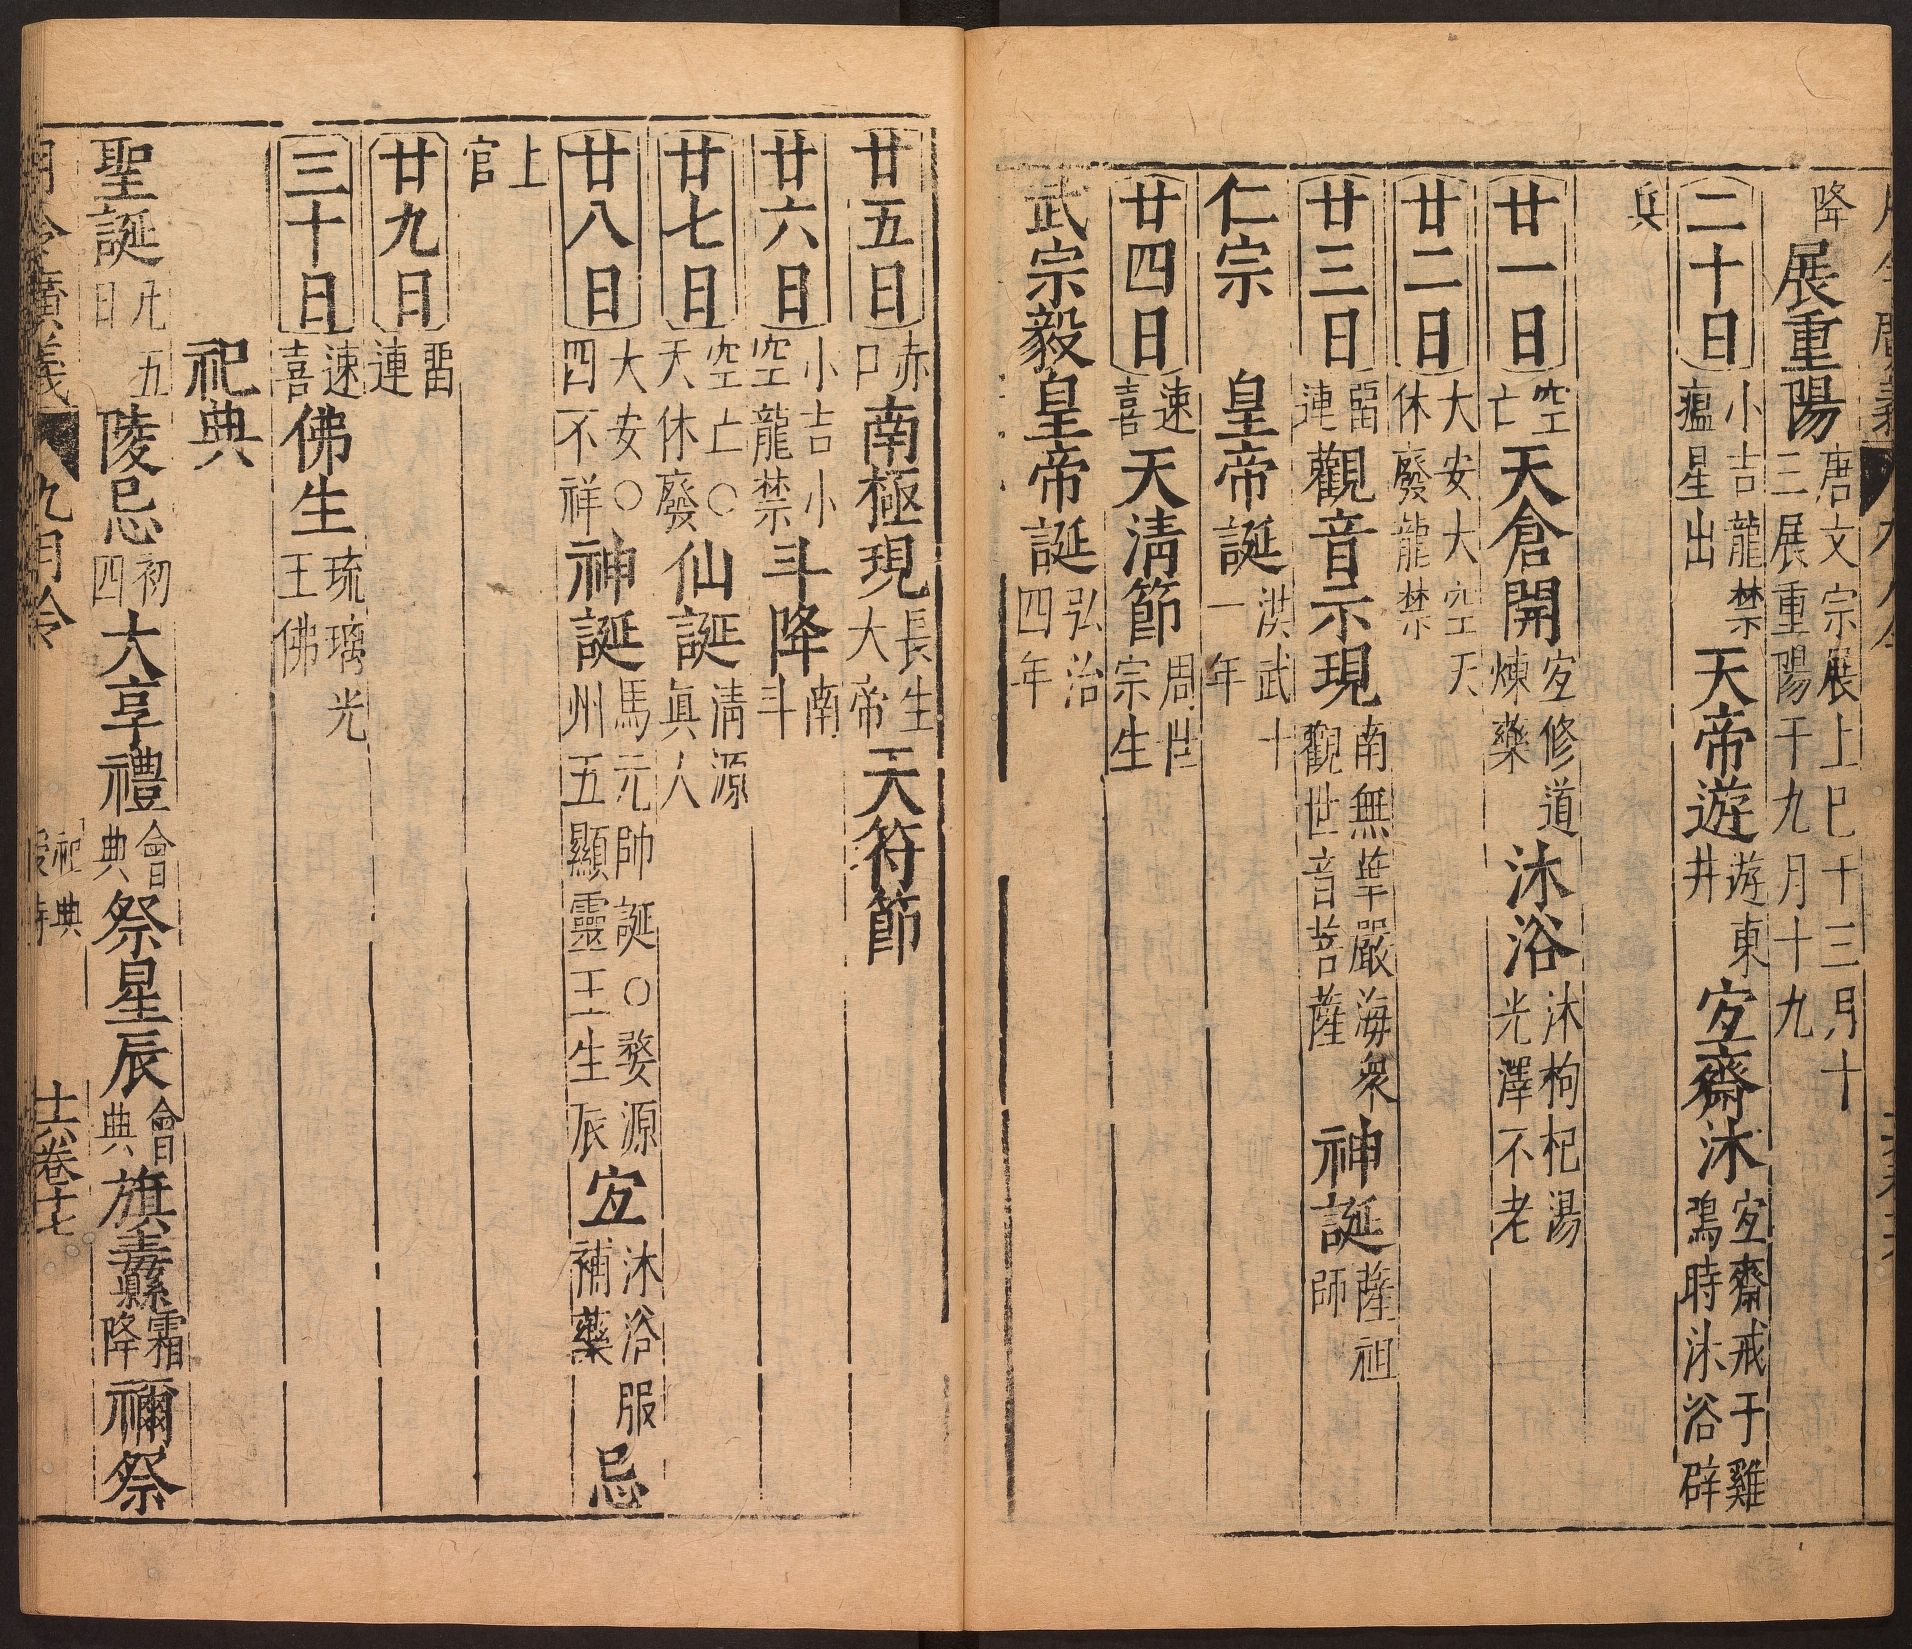 降 展重陽 唐文宗展上巳十三月十三展重陽于九月十九
二十日 小吉龍禁瘟星出 天帝遊 遊東井 宐齋沐 宐齋戒于雞鳴時沐浴辟
兵
廿一日 空亡 天倉開 宐修道煉藥 沐浴 沐枸杞湯光澤不老
廿二日 大安大空天休廢龍禁
廿三日 畱連 觀音示現 南無華嚴海衆觀世音菩薩 神誕 薩祖師
仁宗 皇帝誕 洪武十一年
廿四日 速喜 天清節 周世宗生
武宗毅皇帝誕 弘治四年
廿五日 赤口 南極現 長生大帝 天符節
廿六日 小吉小空龍禁 斗降 南斗
廿七日 空亡○天休廢 仙誕 清源眞人
廿八日 大安○四不祥 神誕 馬元帥誕○婺源州五顯靈王生辰 宐 沐浴服補藥 忌
上官
廿九日 畱連
三十日 速喜 佛生 琉璃光王佛
祀典
聖誕 凡五日 陵忌 初四 大享禮 會典 祭星辰 會典 旗纛 霜降 禰祭
月令廣義 九月令 祀典 十六卷 十七